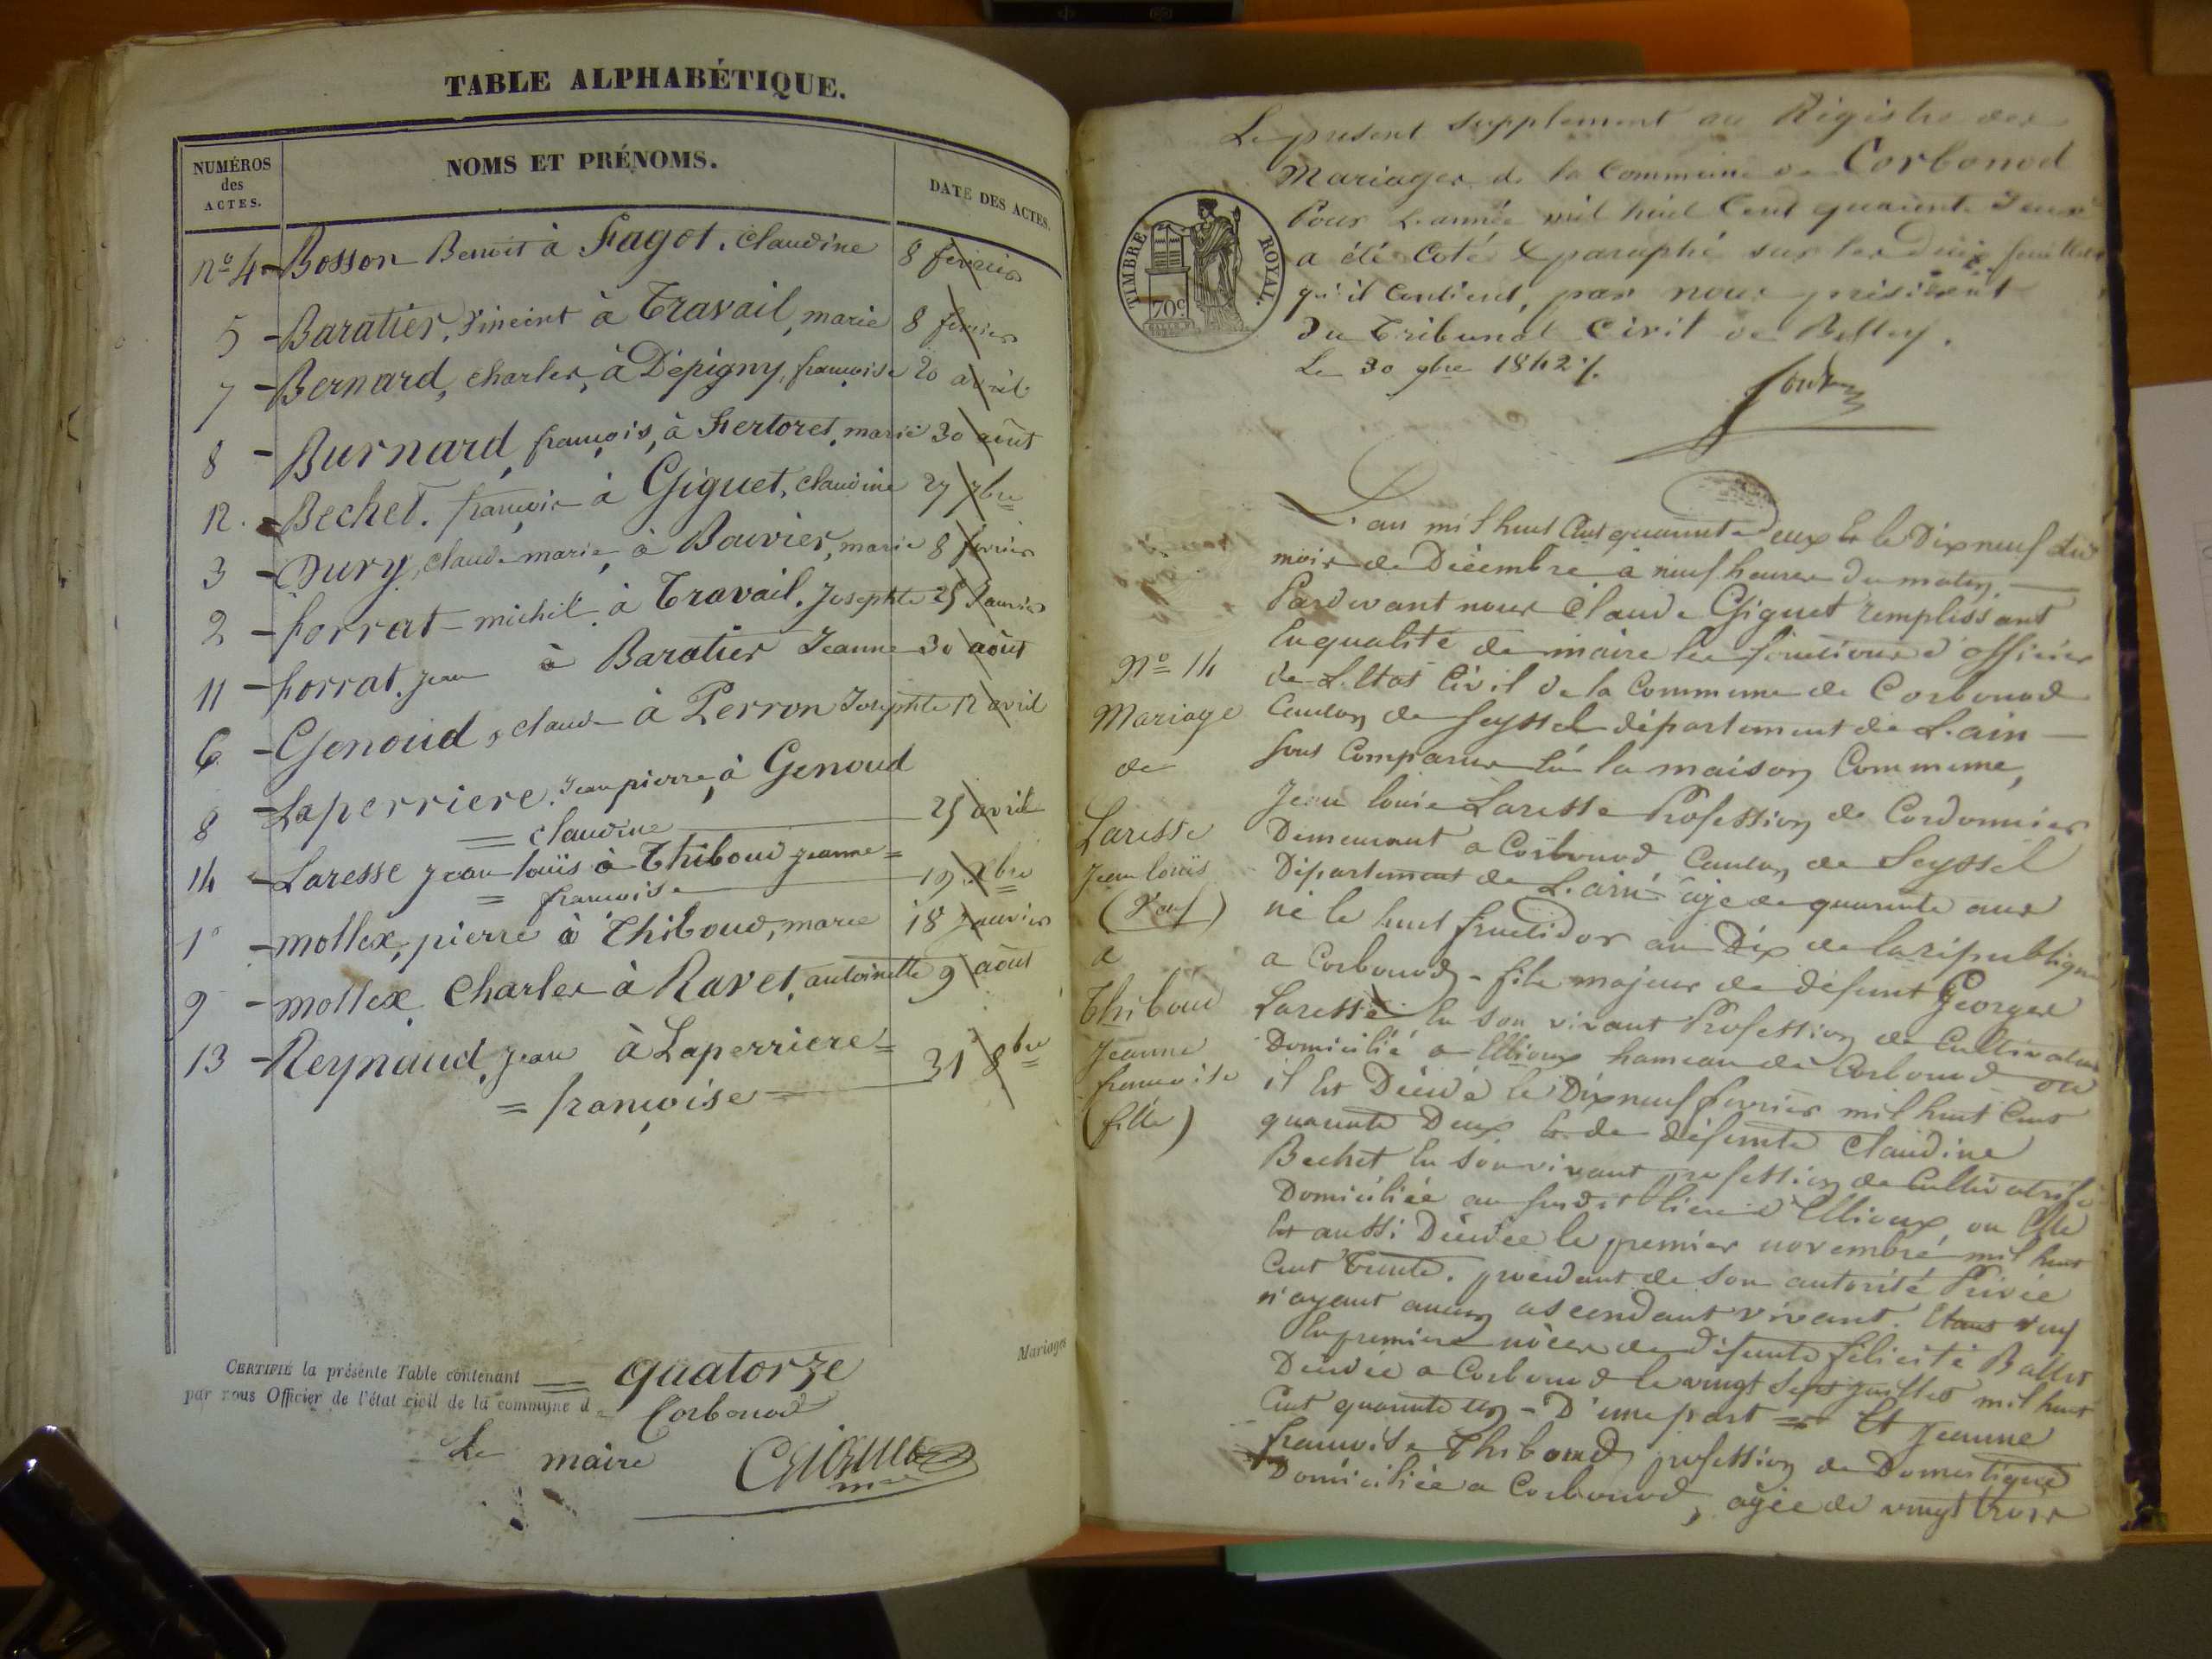 TABLE ALPHABÉTIQUE.
NUMÉROS des ACTES.
NOMS ET PRÉNOMS.
DATE DES ACTES.
n° 4 - Bosson Benoit à Fagot, claudine 8 février
5 - Baratier, Vincent à Travail, marie 8 février
7 - Bernard, charles, à Dépigny, françoise 20 avril
8 - Burnard, françois, à Fertoret, marie 30 août
12. - Bechet, françois à Giguet, claudine 27 7bre
3 - Dury, claude marie, à Bouvier, marie 8 février
2 - forrat michel à Travail, Josephte 25 Janvier
11 - forrat, jean à Baratier Jeanne 30 août
6 - Genoud, claude à Perron Josephte 12 avril
8 - Laperriere, Jean pierre, à Genoud
= claudine 25 avril
14 - Laresse jean louis à Thiboud jeanne =
= françoise 19 xbre
1° - mollex, pierre à Thiboud, marie 18 janvier
9 - mollex Charles à Ravet, antoinette 9 août
13 - Reynaud, jean à Laperriere =
= françoise 31 8bre
Mariages
CERTIFIÉ la présente Table contenant quatorze
par nous Officier de l'état civil de la commune d Corbonod
Le maire Giguet
Le present supplement au Régistre des
Mariages de la Commune de Corbonod
Pour L'année mil huit Cent quarante Deux
a été Coté & paraphé sur les Deux feuillets
qu'il Contient, par nous président
Du Tribunal Civil de Belley.
Le 30 9bre 1842 %.
TIMBRE ROYAL.
70c
L'an mil huit Cent quarante Deux Et le Dix neuf du
mois de Décembre à neuf heures du matin,
Pardevant nous Claude Giguet remplissant
En qualité de maire les fonctions d'officier
de L'Etat Civil de la Commune de Corbonod
Canton de Seyssel département de L'ain
sont Comparus En la maison Commune,
N° 14
Mariage
de
Laresse
Jean louis
(Veuf)
a
Thiboud
Jeanne
françoise
(fille)
Jean louis Laresse Profession de Cordonnier
Demeurant a Corbonod Canton de Seyssel
Département de L'ain agé de quarante ans
né le huit fructidor an Dix de la république
a Corbonod - fils majeur de défunt George
Laresse En son vivant Profession de Cultivateur
Domicilié a Ellioux hameau de Corbonod ou
il Est Décédé le Dix neuf fevrier mil huit Cent
quarante Deux Et de défunte Claudine
Bechet En son vivant profession de Cultivatrice
Domiciliée au susdit lieu d'Ellioux, ou Elle
Est aussi Décédée le premier novembre mil huit
Cent Trente. procedant de son autorité Privée
n'ayant aucun ascendant vivant. Etant veuf
En premiere nôces de défunte félicité Ballet
Décédée a Corbonod le vingt Sept juillet mil huit
Cent quarante un - D'une part = Et Jeanne
françoise Thiboud, profession de Domestique
Domiciliée a Corbonod, agée de vingt trois